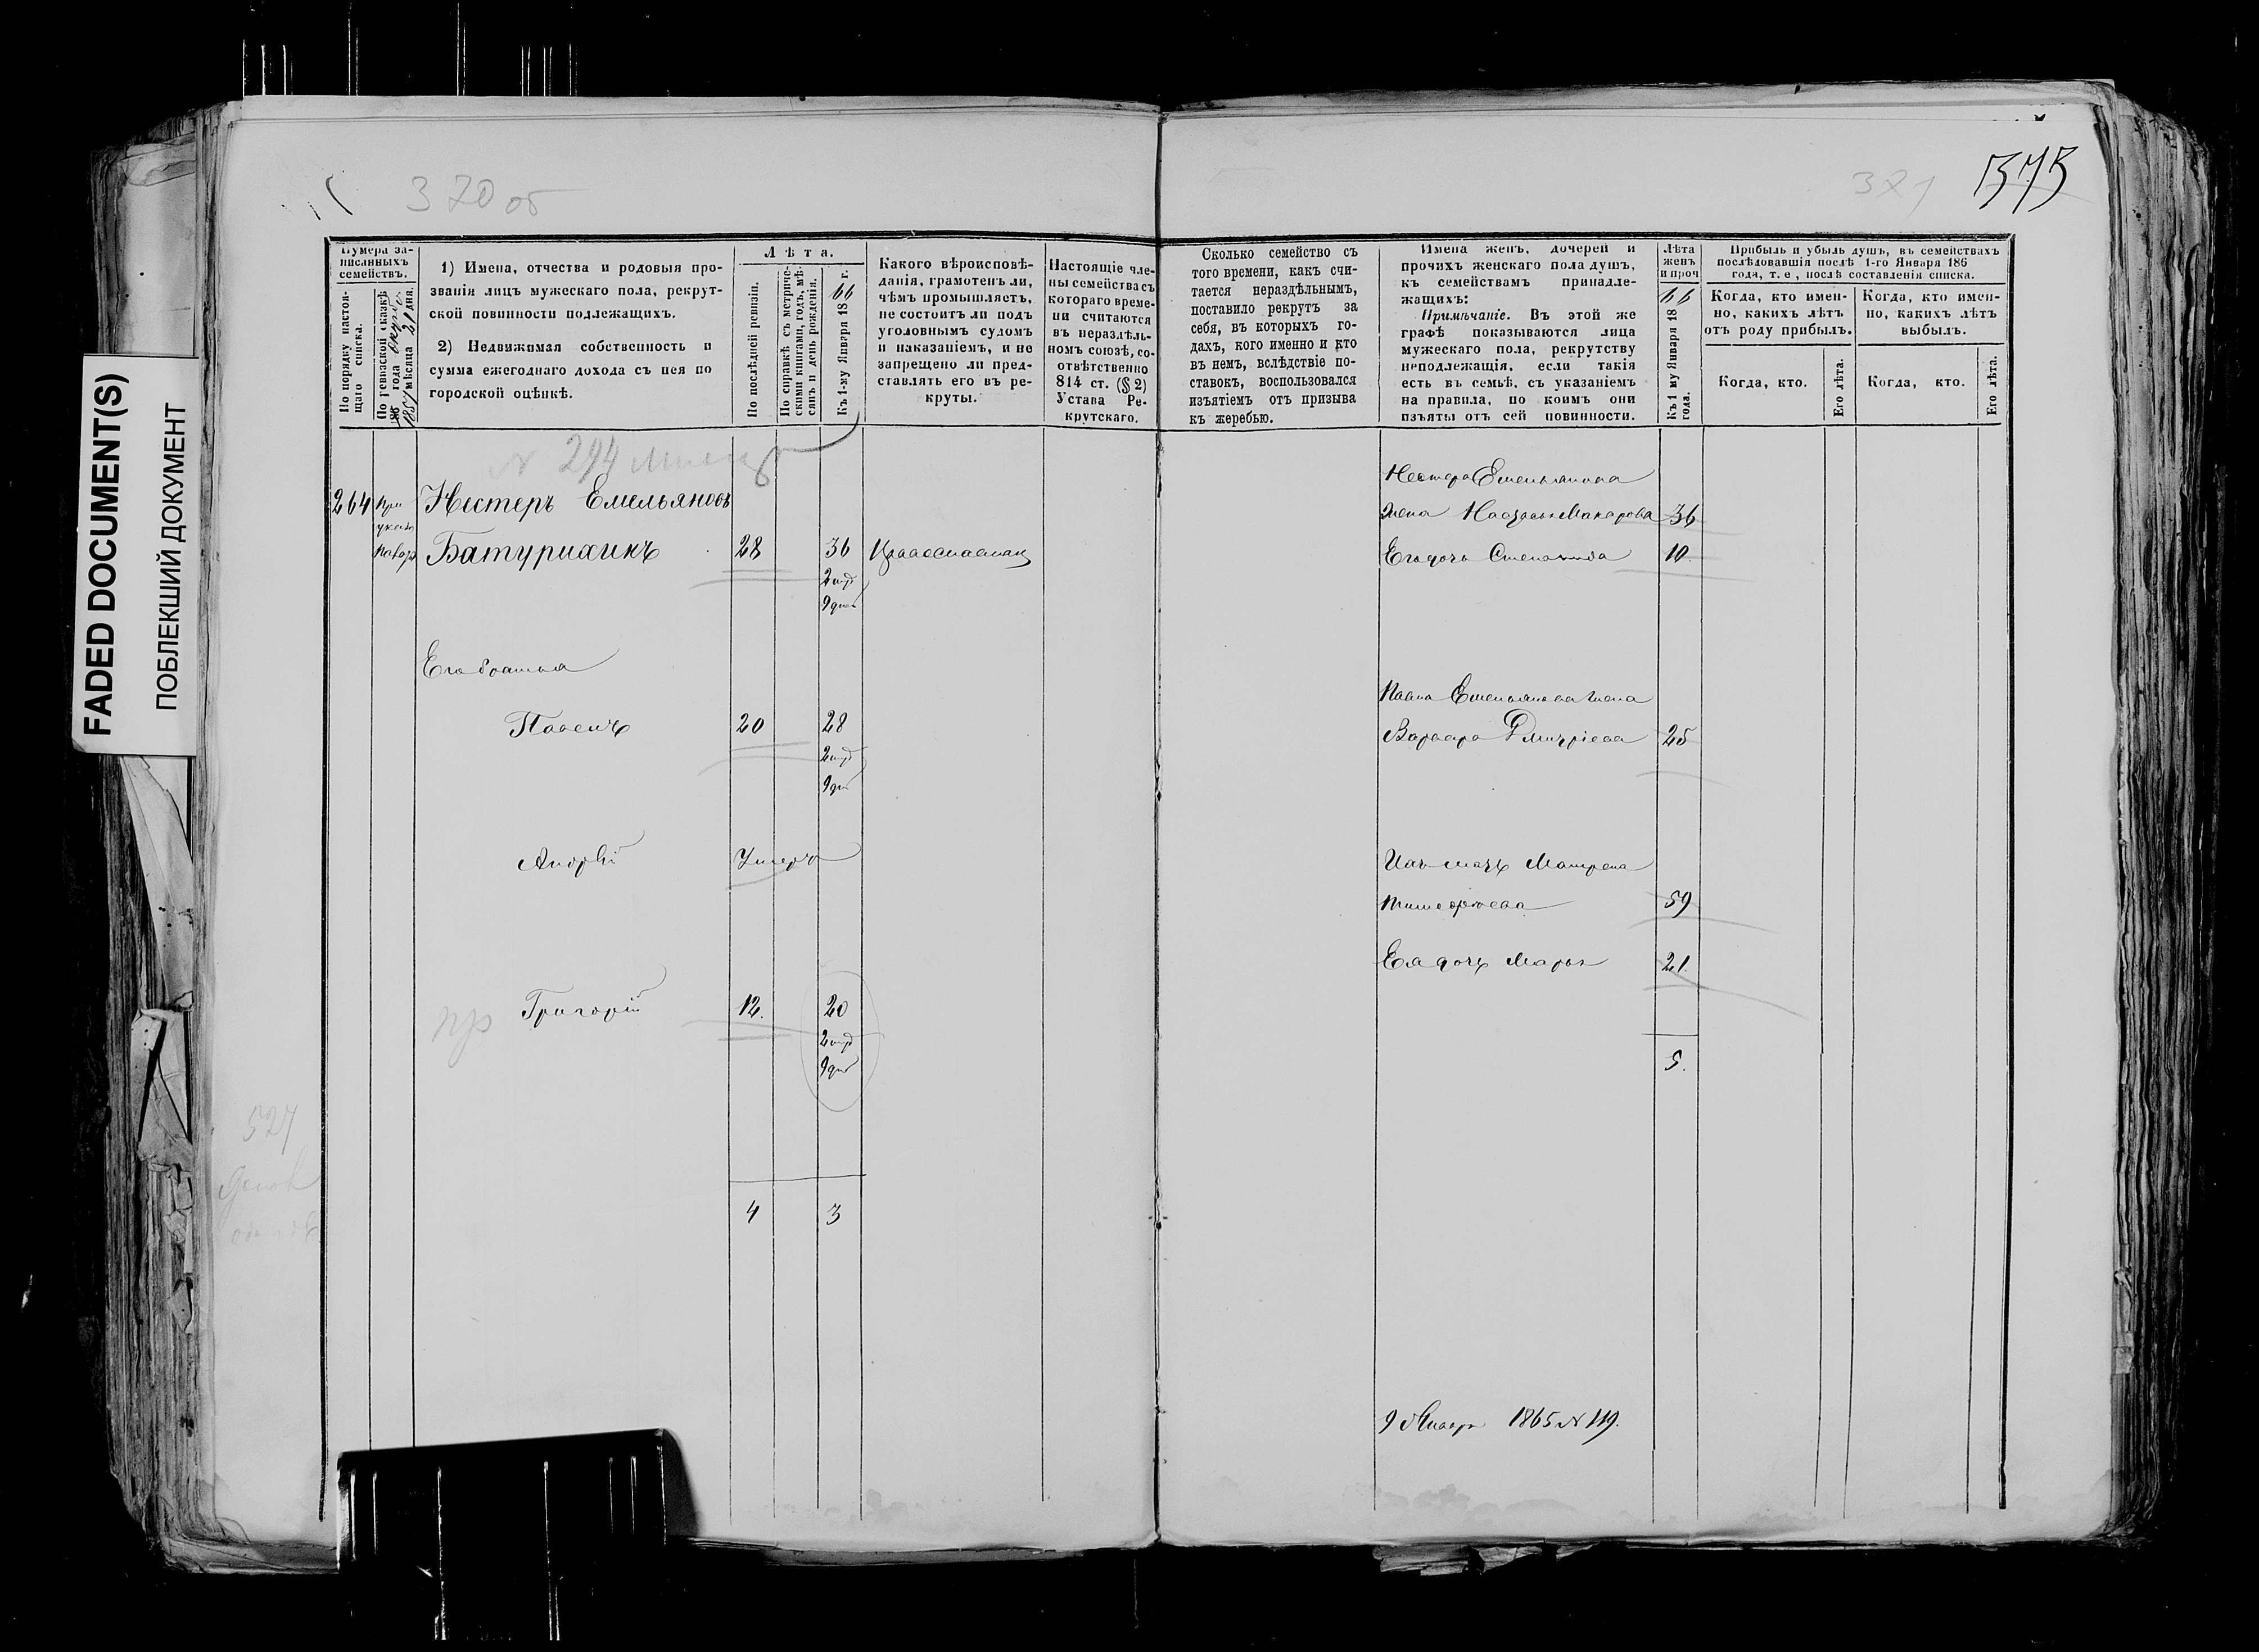 FADED DOCUMENT(S)
ПОБЛЕКШИЙ ДОКУМЕНТ
370 об
321
Нумера за-
писанныхъ
семействъ.
По порядку настоя-
щаго списка.
По ревизской сказкѣ
185 года
1857 мѣсяца 21 дня.
1) Имена, отчества и родовыя про-
званія лицъ мужескаго пола, рекрут-
ской повинности подлежащихъ.
2) Недвижимая собственность и
сумма ежегоднаго дохода съ нея по
городской оцѣнкѣ.
Лѣта.
По послѣдней ревизіи.
По справкѣ съ метриче-
скими книгами, годъ, мѣ-
сяцъ и день рожденія.
Къ 1-му Января 1866 г.
Какого вѣроисповѣ-
данія, грамотенъ ли,
чѣмъ промышляетъ,
не состоитъ ли подъ
уголовнымъ судомъ
и наказаніемъ, и не
запрещено ли пред-
ставлять его въ ре-
круты.
Настоящіе чле-
ны семейства съ
котораго време-
ни считаются
въ нераздѣль-
номъ союзѣ, со-
отвѣтственно
814 ст. (§ 2)
Устава Ре-
крутскаго.
Сколько семейство съ
того времени, какъ счи-
тается нераздѣльнымъ,
поставило рекрутъ за
себя, въ которыхъ го-
дахъ, кого именно и кто
въ немъ, вслѣдствіе по-
ставокъ, воспользовался
изъятіемъ отъ призыва
къ жеребью.
Имена женъ, дочерей и
прочихъ женскаго пола душъ,
къ семействамъ принадле-
жащихъ:
Примѣчаніе. Въ этой же
графѣ показываются лица
мужескаго пола, рекрутству
неподлежащія, если такія
есть въ семьѣ, съ указаніемъ
на правила, по коимъ они
изъяты отъ сей повинности.
Лѣта
женъ
и проч
Къ 1 му Января 1866
года.
Прибыль и убыль душъ, въ семействахъ
послѣдовавшія послѣ 1-го Января 186
года, т. е., послѣ составленія списка.
Когда, кто имен-
но, какихъ лѣтъ
отъ роду прибылъ.
Когда, кто имен-
но, какихъ лѣтъ
выбылъ.
Когда, кто.
Его лѣта.
Когда, кто.
Его лѣта.
№ 294
264 При Нестеръ Емельяновъ
Батурихинъ 28 36 Православнаго
9 дней
Его братья
Павелъ 20 28
9 дней
Андрей Умеръ
пр Григорій 12. 20
9 дней
4 3
524
Нестера Емельянова
жена Настасья Макарова 36
Его дочь Степанида 10
Павла Емельянова жена
Варвара Дмитріева 25
Ихъ мать Матрена
Тимофѣева 59
Ея дочь Марья 21.
5.
9 Января 1865 № 119.